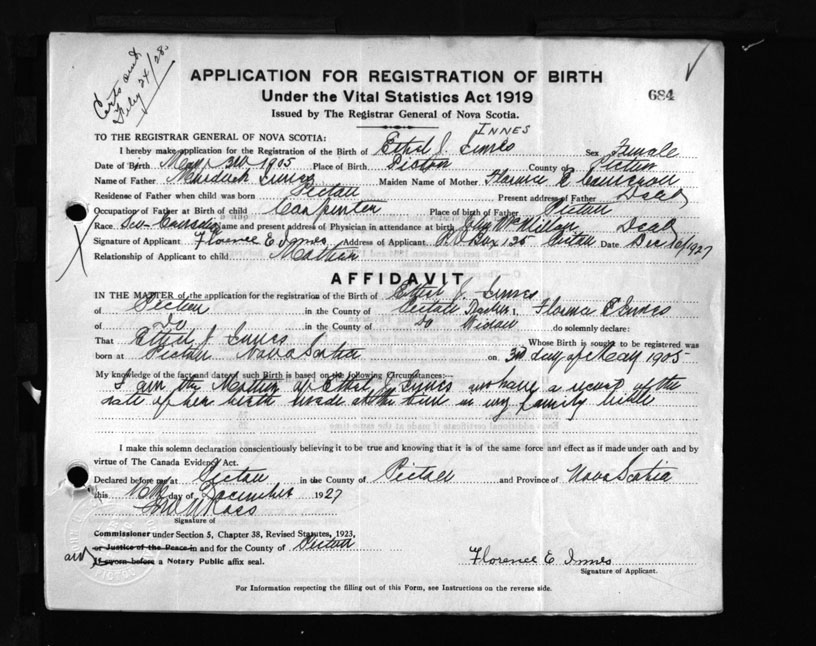 Certs sent
Feby 24/28
APPLICATION FOR REGISTRATION OF BIRTH
Under the Vital Statistics Act 1919
684
Issued by The Registrar General of Nova Scotia.
TO THE REGISTRAR GENERAL OF NOVA SCOTIA:
INNES
I hereby make application for the Registration of the Birth of Ethel J. Innes Sex Female
Date of Birth May 3rd 1905 Place of Birth Pictou County of Pictou
Name of Father Innes Maiden Name of Mother Florence E
Residence of Father when child was born Pictou Present address of Father Dead
Occupation of Father at Birth of child Carpenter Place of birth of Father Pictou
Race Name and present address of Physician in attendance at birth John McMillan Dead
Signature of Applicant Florence E Innes Address of Applicant P.O Box 125 Pictou Date Dec 16/1927
Relationship of Applicant to child Mother
AFFIDAVIT
IN THE MATTER of the application for the registration of the Birth of Ethel J. Innes
of Pictou in the County of Pictou I, Florence E Innes
of Do in the County of Do do solemnly declare:
That Ethel J Innes Whose Birth is sought to be registered was
born at Pictou Nova Scotia on 3rd day of May 1905
My knowledge of the fact and date of such Birth is based on the following Circumstances:—
I am the Mother of Ethel J. Innes and have a record of the
date of her birth made at the time in my family bible
I make this solemn declaration conscientiously believing it to be true and knowing that it is of the same force and effect as if made under oath and by
virtue of The Canada Evidence Act.
Declared before me at Pictou in the County of Pictou and Province of Nova Scotia
this day of December 1927
Ross
Signature of
Commissioner under Section 5, Chapter 38, Revised Statutes, 1923,
or Justice of the Peace in and for the County of Pictou
If sworn before a Notary Public affix seal.
Florence E Innes
Signature of Applicant.
For Information respecting the filling out of this Form, see Instructions on the reverse side.